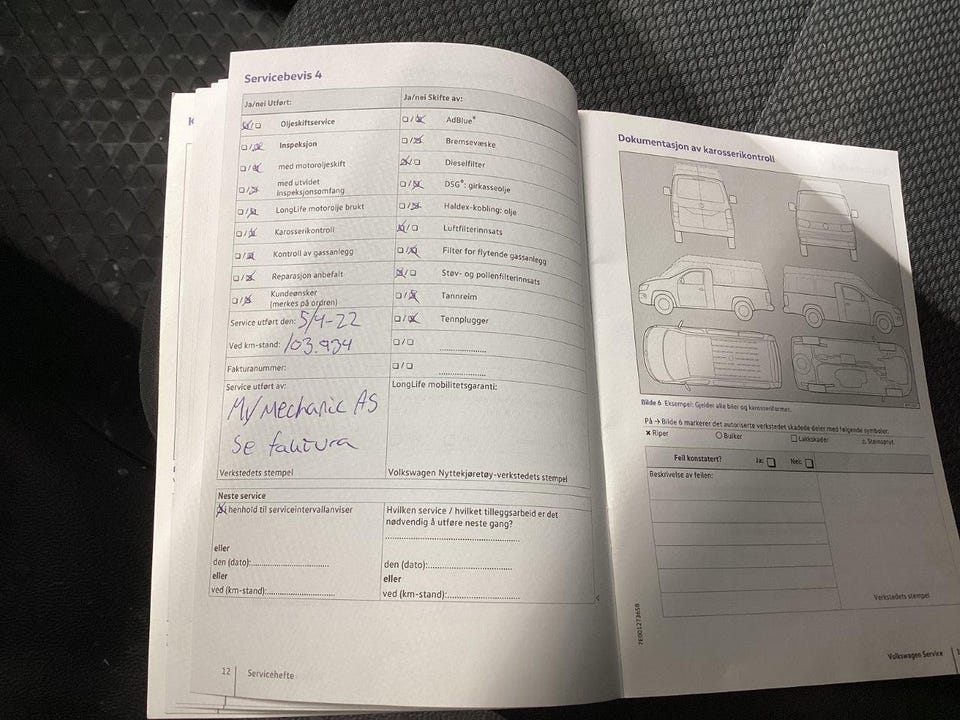 Servicebevis 4
Ja/nei Utført:
Oljeskiftservice
Inspeksjon
med motoroljeskift
med utvidet
inspeksjonsomfang
LongLife motorolje brukt
Karosserikontroll
Kontroll av gassanlegg
Reparasjon anbefalt
Kundeønsker
(merkes på ordren)
Service utført den: 5/4-22
Ved km-stand: 103.934
Fakturanummer:
Service utført av:
My Mechanic AS
Se faktura
Verkstedets stempel
Ja/nei Skifte av:
AdBlue®
Bremsevæske
Dieselfilter
DSG®: girkasseolje
Haldex-kobling: olje
Luftfilterinnsats
Filter for flytende gassanlegg
Støv- og pollenfilterinnsats
Tannreim
Tennplugger
LongLife mobilitetsgaranti:
Volkswagen Nyttekjøretøy-verkstedets stempel
Neste service
henhold til serviceintervallanviser
eller
den (dato):
eller
ved (km-stand):
Hvilken service / hvilket tilleggsarbeid er det
nødvendig å utføre neste gang?
den (dato):
eller
ved (km-stand):
12 Servicehefte
Dokumentasjon av karosserikontroll
Bilde 6 Eksempel: Gjelder alle biler og karosseriformer.
På → Bilde 6 markerer det autoriserte verkstedet skadede deler med følgende symboler.
Riper
Bulker
Lakkskader
Steinsprut
Feil konstatert? Ja: Nei:
Beskrivelse av feilen:
Verkstedets stempel
7E0012736SB
Volkswagen Service